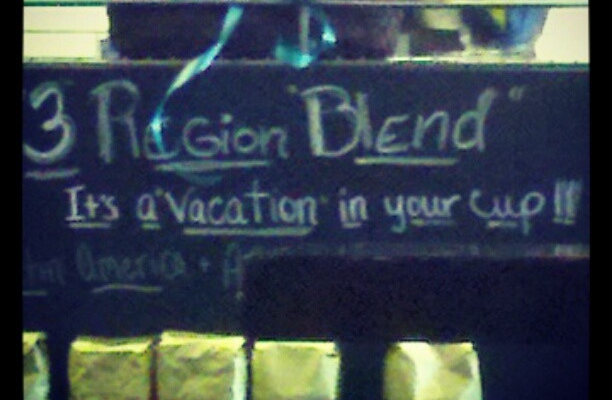 "3 Region "Blend"
It's a "Vacation" in your cup!!
America +